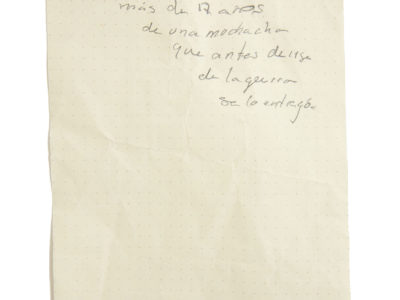 más de 17 años
de una muchacha
que antes de irse
de la guerra
se lo entregó